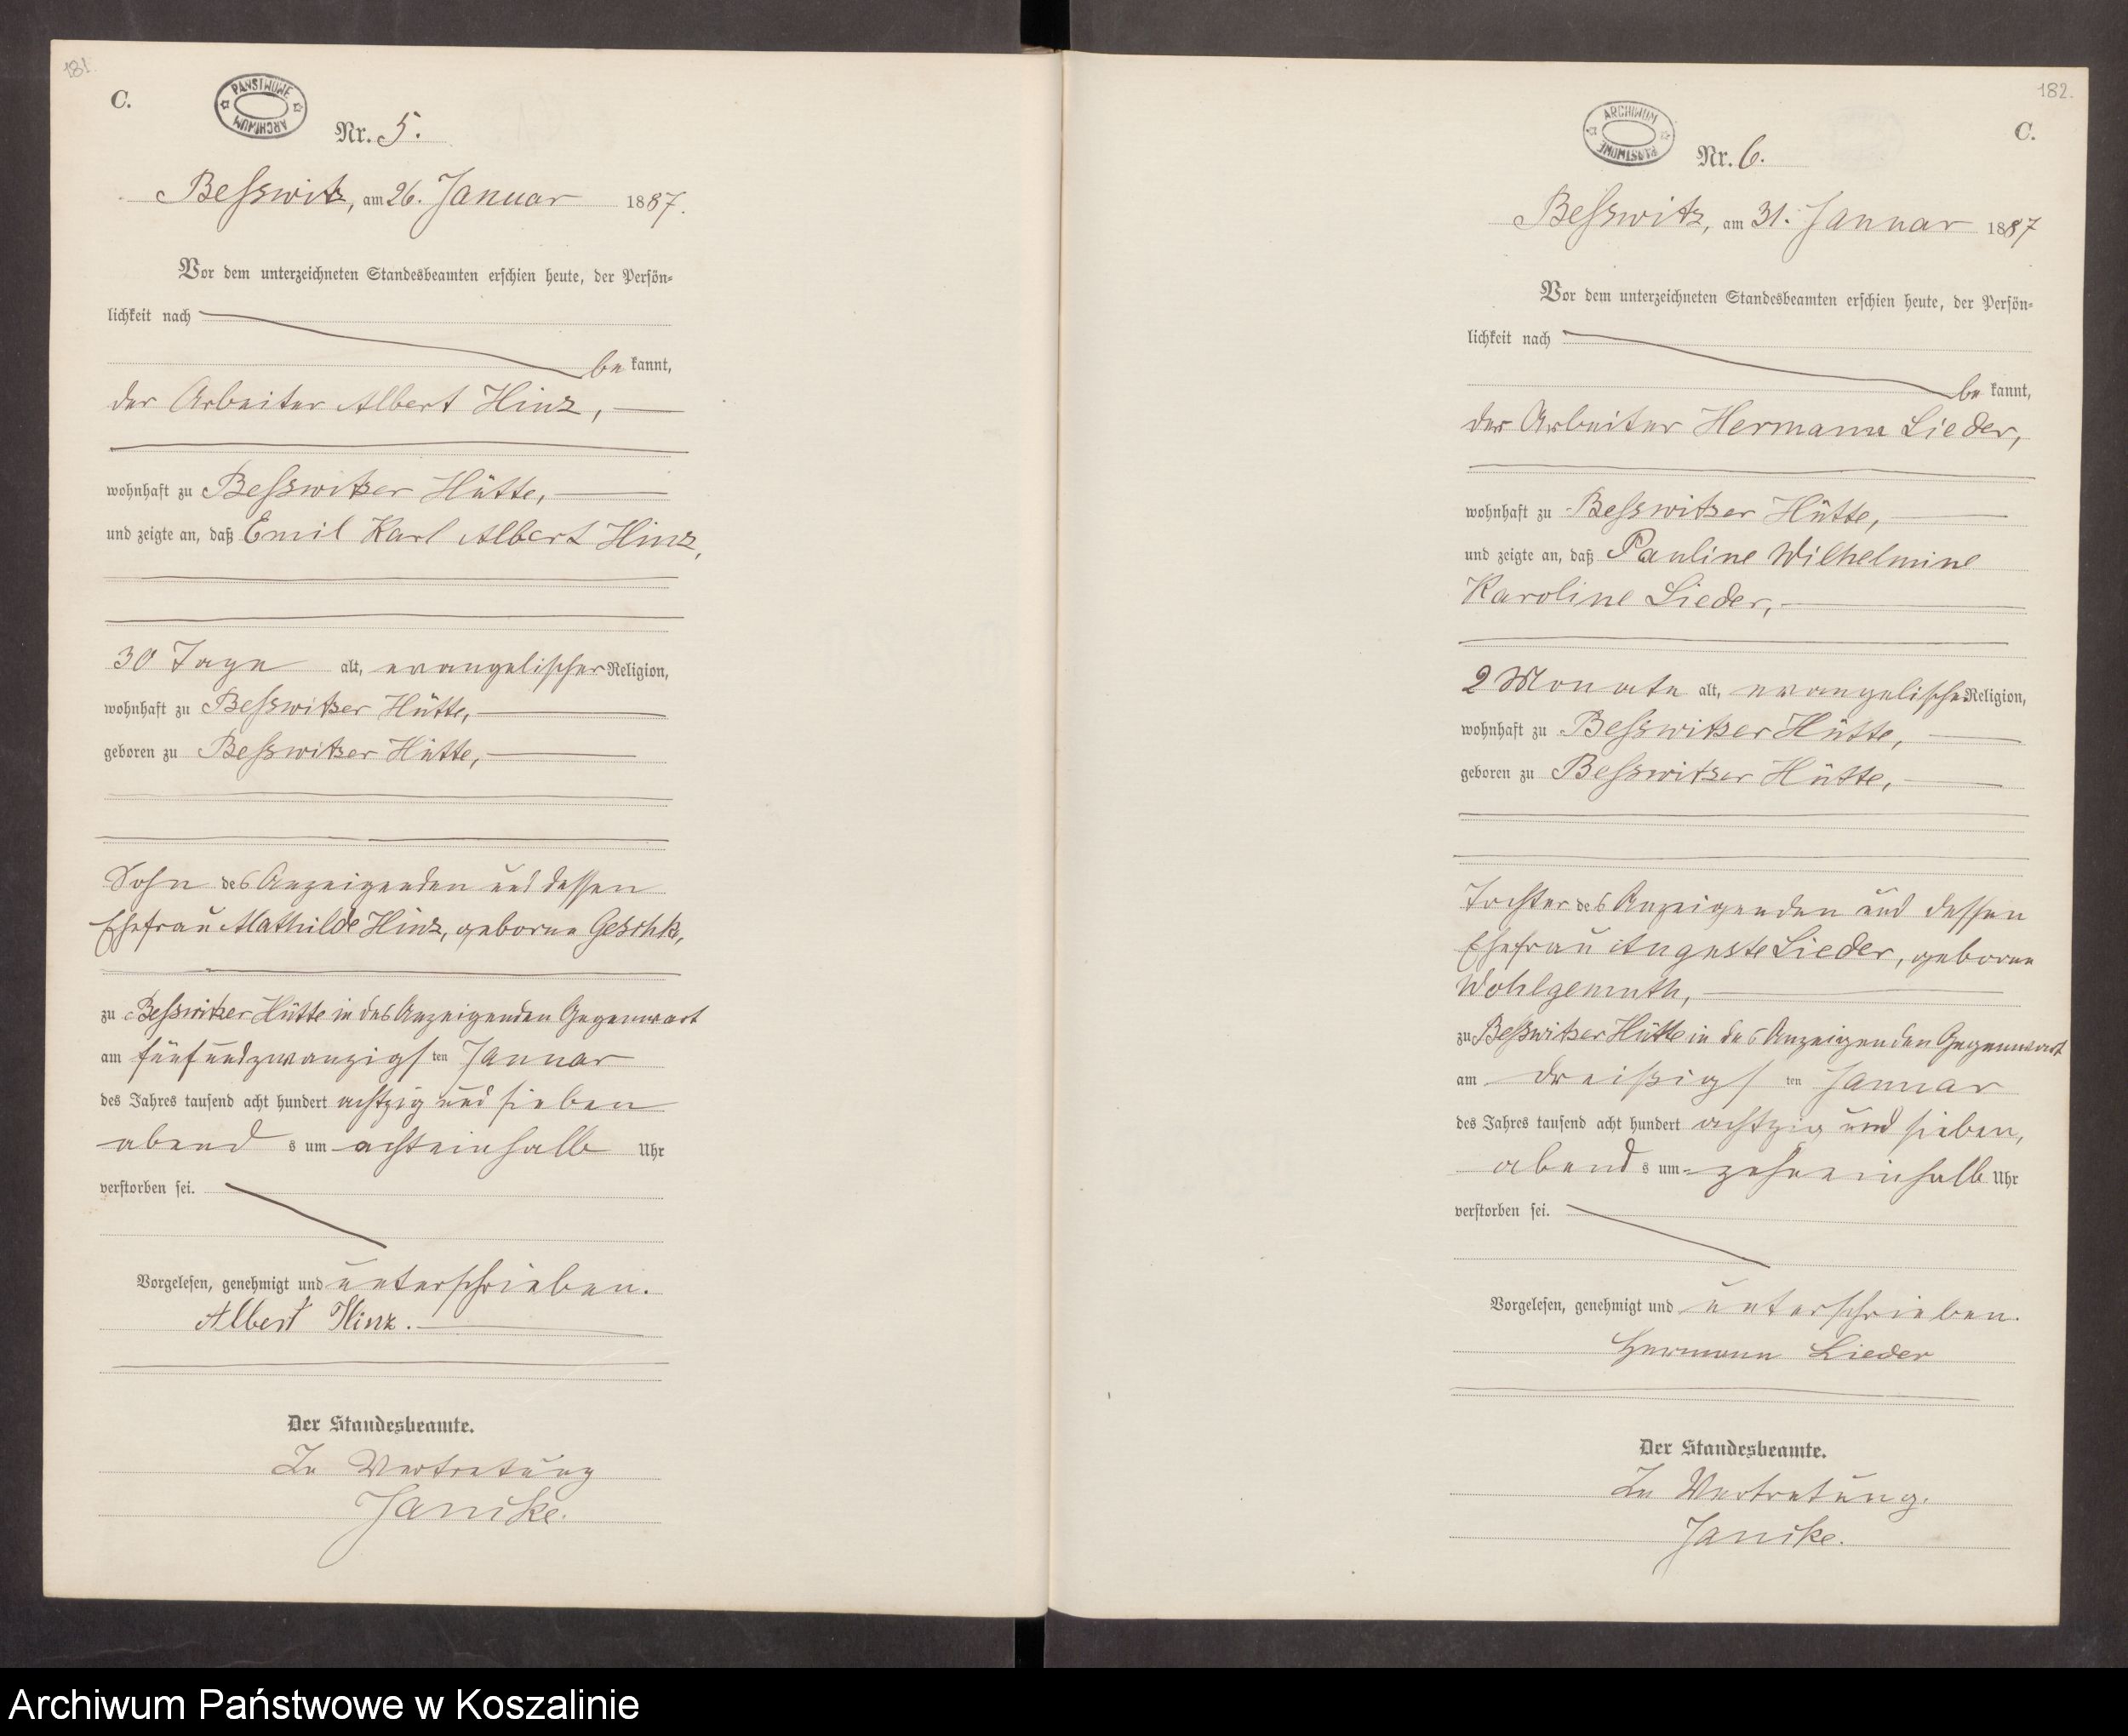 181.
C.
PAŃSTWOWE ARCHIWUM
Nr. 5.
Besswitz, am 26. Januar 1887.
Vor dem unterzeichneten Standesbeamten erschien heute, der Persön-
lichkeit nach
be kannt,
der Arbeiter Albert Hinz,
wohnhaft zu Besswitzer Hütte,
und zeigte an, daß Emil Karl Albert Hinz,
30 Tage alt, evangelischer Religion,
wohnhaft zu Besswitzer Hütte,
geboren zu Besswitzer Hütte,
Sohn des Anzeigenden und dessen
Ehefrau Mathilde Hinz, geborne
zu Besswitzer Hütte in des Anzeigenden Gegenwart
am fünfundzwanzigs ten Januar
des Jahres tausend acht hundert achtzig und sieben
abend s um achteinhalb Uhr
verstorben sei.
Vorgelesen, genehmigt und unterschrieben.
Albert Hinz.
Der Standesbeamte.
In Vertretung
Janike.
182.
C.
ARCHIWUM PAŃSTWOWE
Nr. 6.
Besswitz, am 31. Januar 1887
Vor dem unterzeichneten Standesbeamten erschien heute, der Persön-
lichkeit nach
be kannt,
der Arbeiter Hermann Lieder,
wohnhaft zu Besswitzer Hütte,
und zeigte an, daß Pauline Wilhelmine
Karoline Lieder,
2 Monate alt, evangelischer Religion,
wohnhaft zu Besswitzer Hütte,
geboren zu Besswitzer Hütte,
Tochter des Anzeigenden und dessen
Ehefrau Auguste Lieder, geborne
Wohlgemuth,
zu Besswitzer Hütte in des Anzeigenden Gegenwart
am dreißigs ten Januar
des Jahres tausend acht hundert achtzig und sieben,
abend s um zehneinhalb Uhr
verstorben sei.
Vorgelesen, genehmigt und unterschrieben.
Hermann Lieder
Der Standesbeamte.
In Vertretung.
Janike.
Archiwum Państwowe w Koszalinie